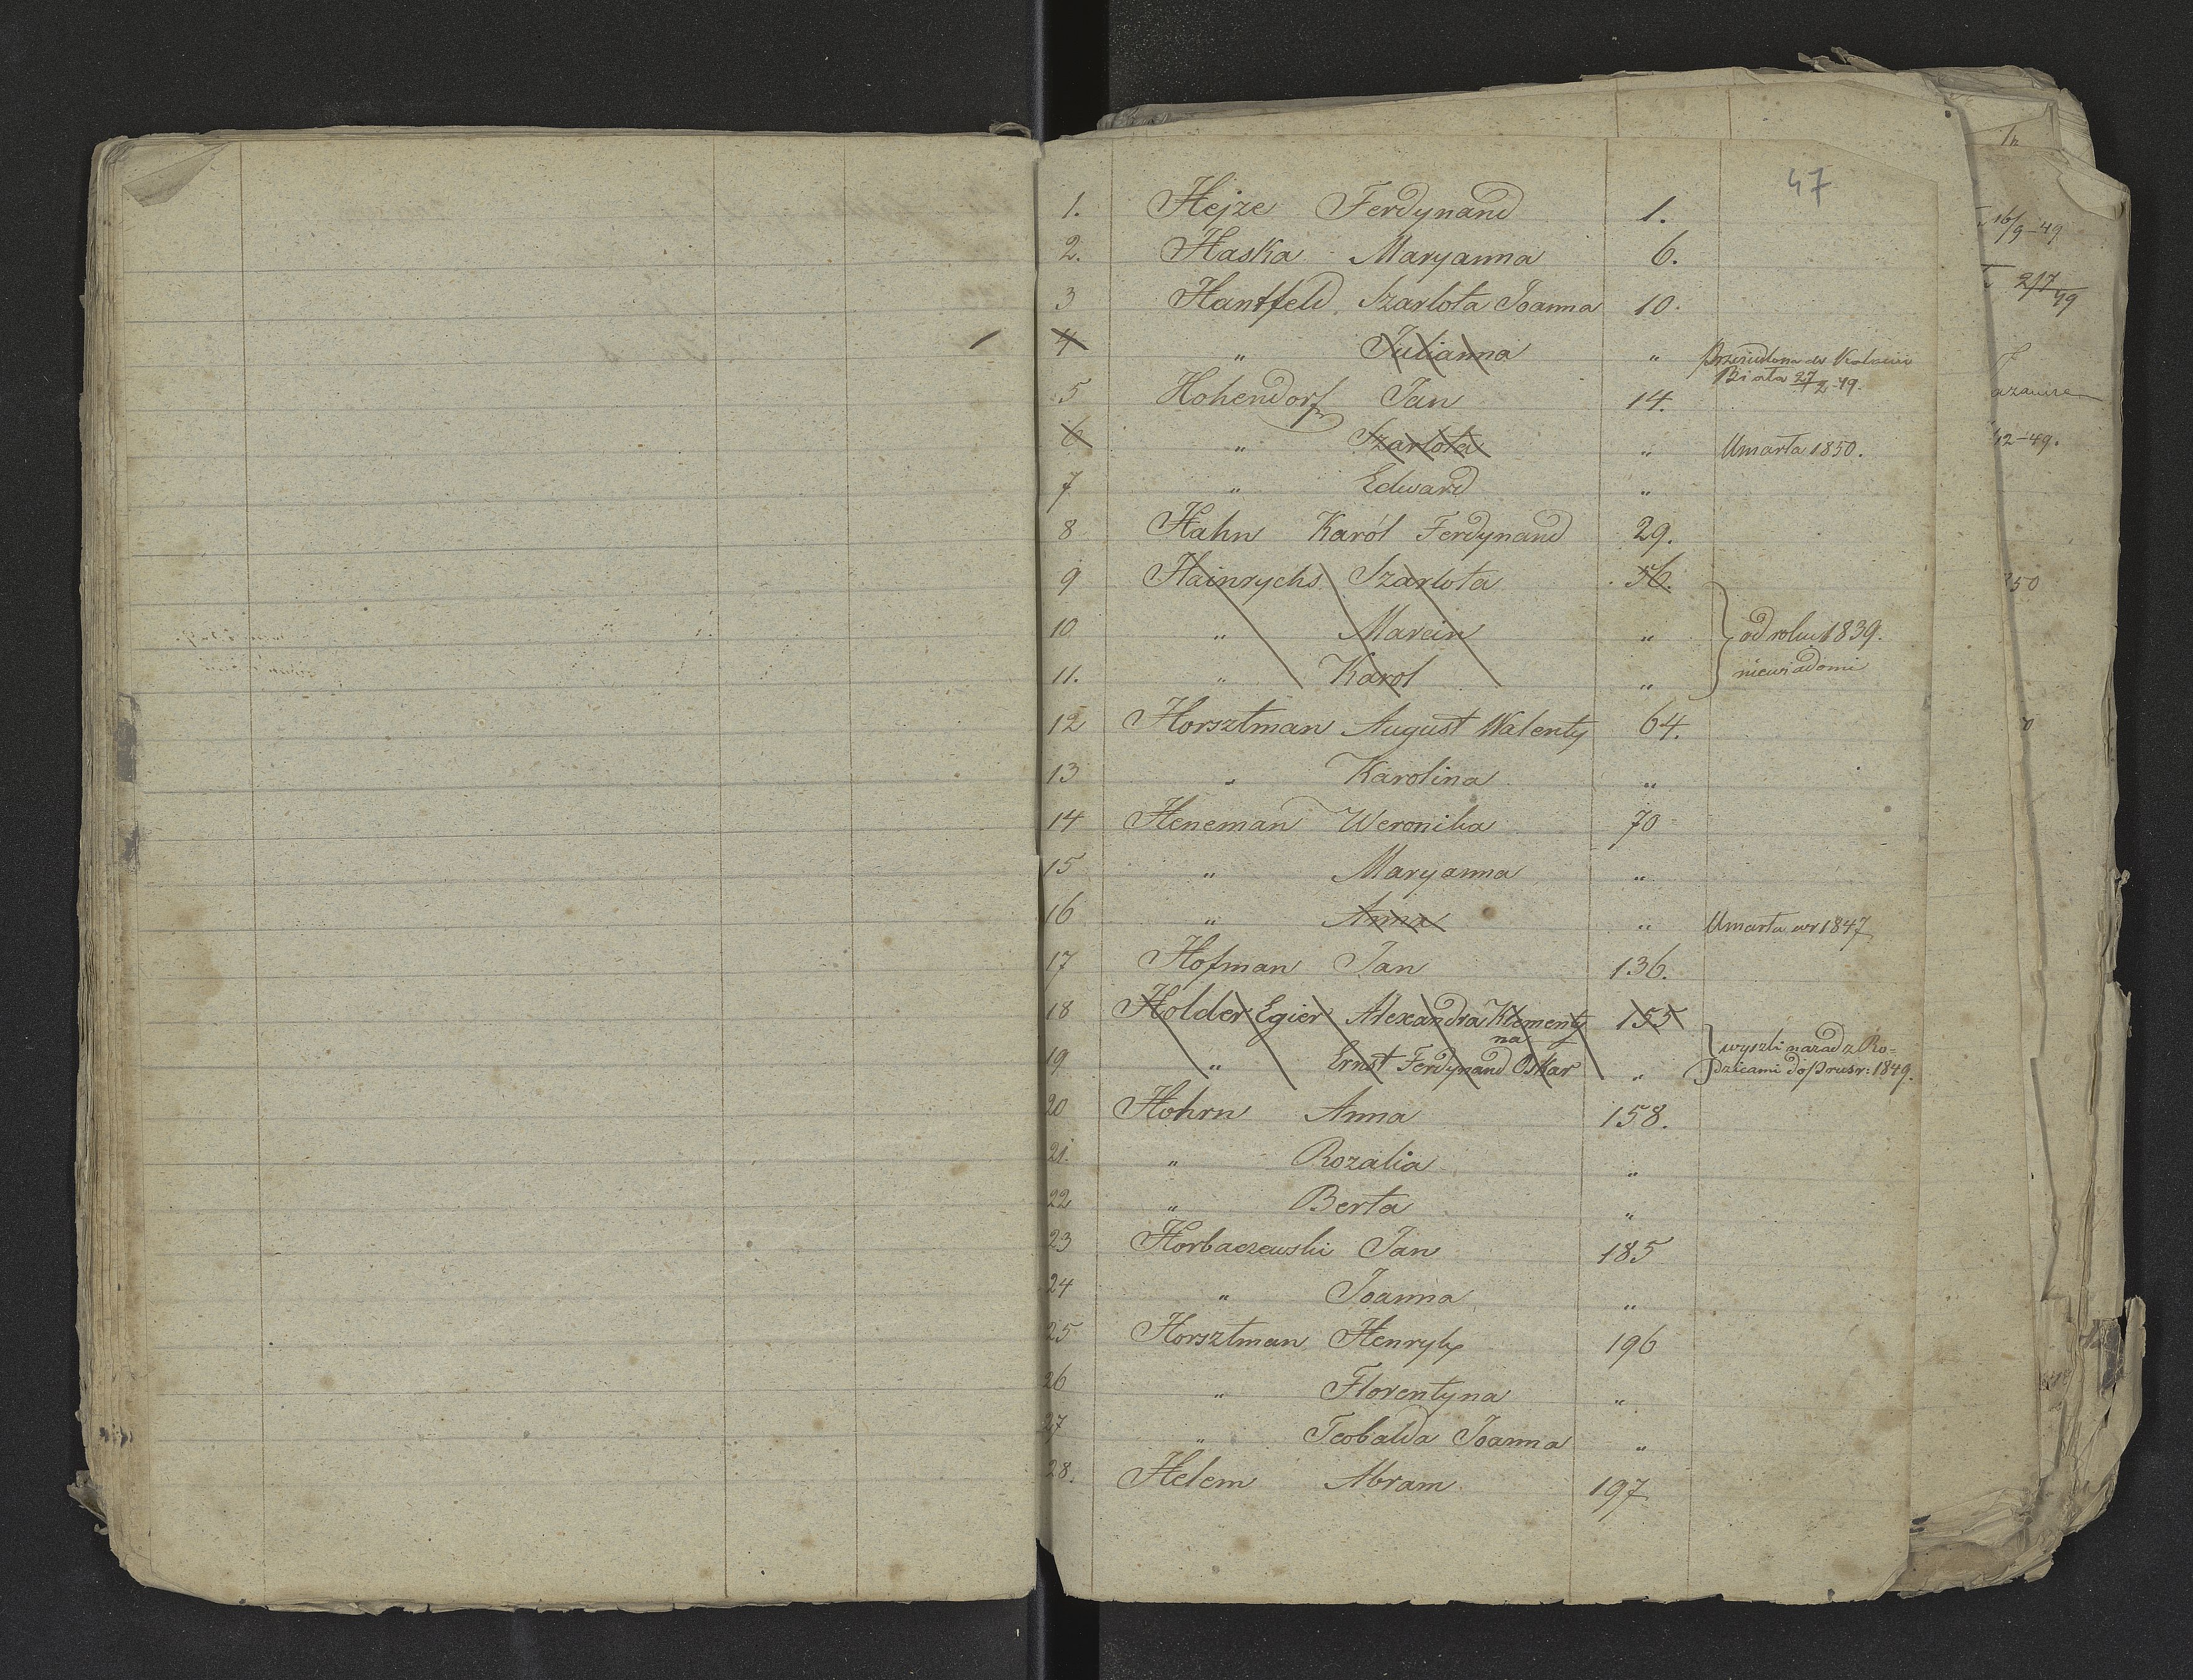 47
1. Hejze Ferdynand 1.
2. Haska Maryanna 6.
3 Hantfeld Szarlota Joanna 10.
4 " Julianna " Przesiedlona do
Biała 27/2 49.
5 Hohendorf Jan 14.
6 " Szarlota " Umarła 1850.
7 " Edward "
8 Hahn Karól Ferdynand 29.
9 Hainrychs Szarlota 56.
10 " Marcin " od roku 1839.
11. " Karol " niewiadomi
12 Horsztman August Walenty 64.
13 " Karolina "
14 Heneman Weronika 70
15 " Maryanna "
16 " Anna " Umarła w r 1847
17 Hofman Jan 136.
18 Holder Egier Alexandra Klementy 155
na
wyszli nazad z Ro-
19 " Ernst Ferdynand Oskar " dzicami do Prus r: 1849.
20 Hohrn Anna 158.
21. " Rozalia "
22 " Berta "
23 Horbaczewski Jan 185
24 " Joanna "
25 Horsztman Henryk 196
26 " Florentyna "
27 " Teobalda Joanna "
28. Helem Abram 197
16/9-49
2/7 49
12-49.
50